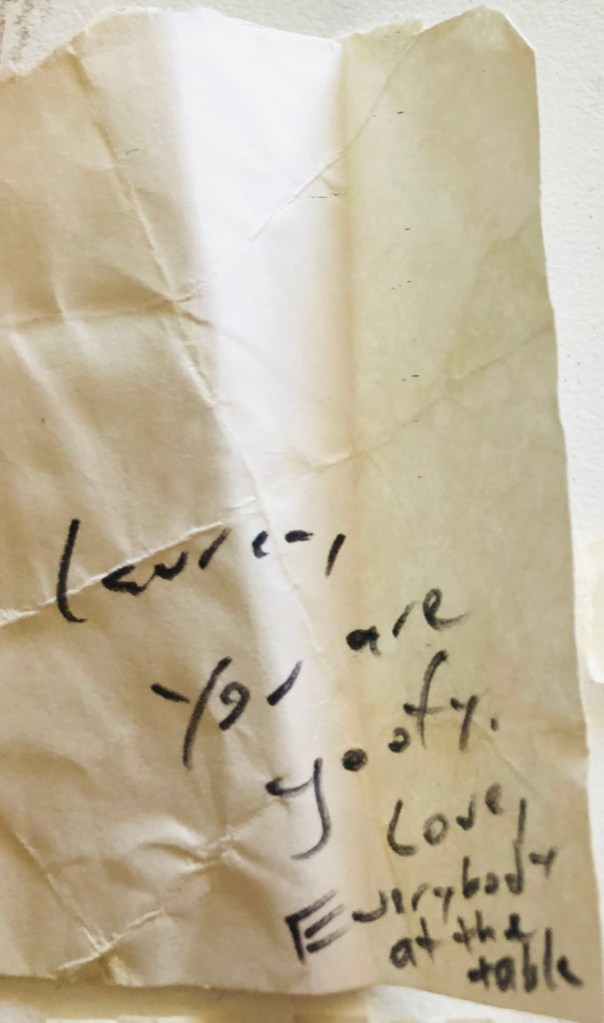 Lauren,
You are
goofy.
Love,
Everybody
at the
table